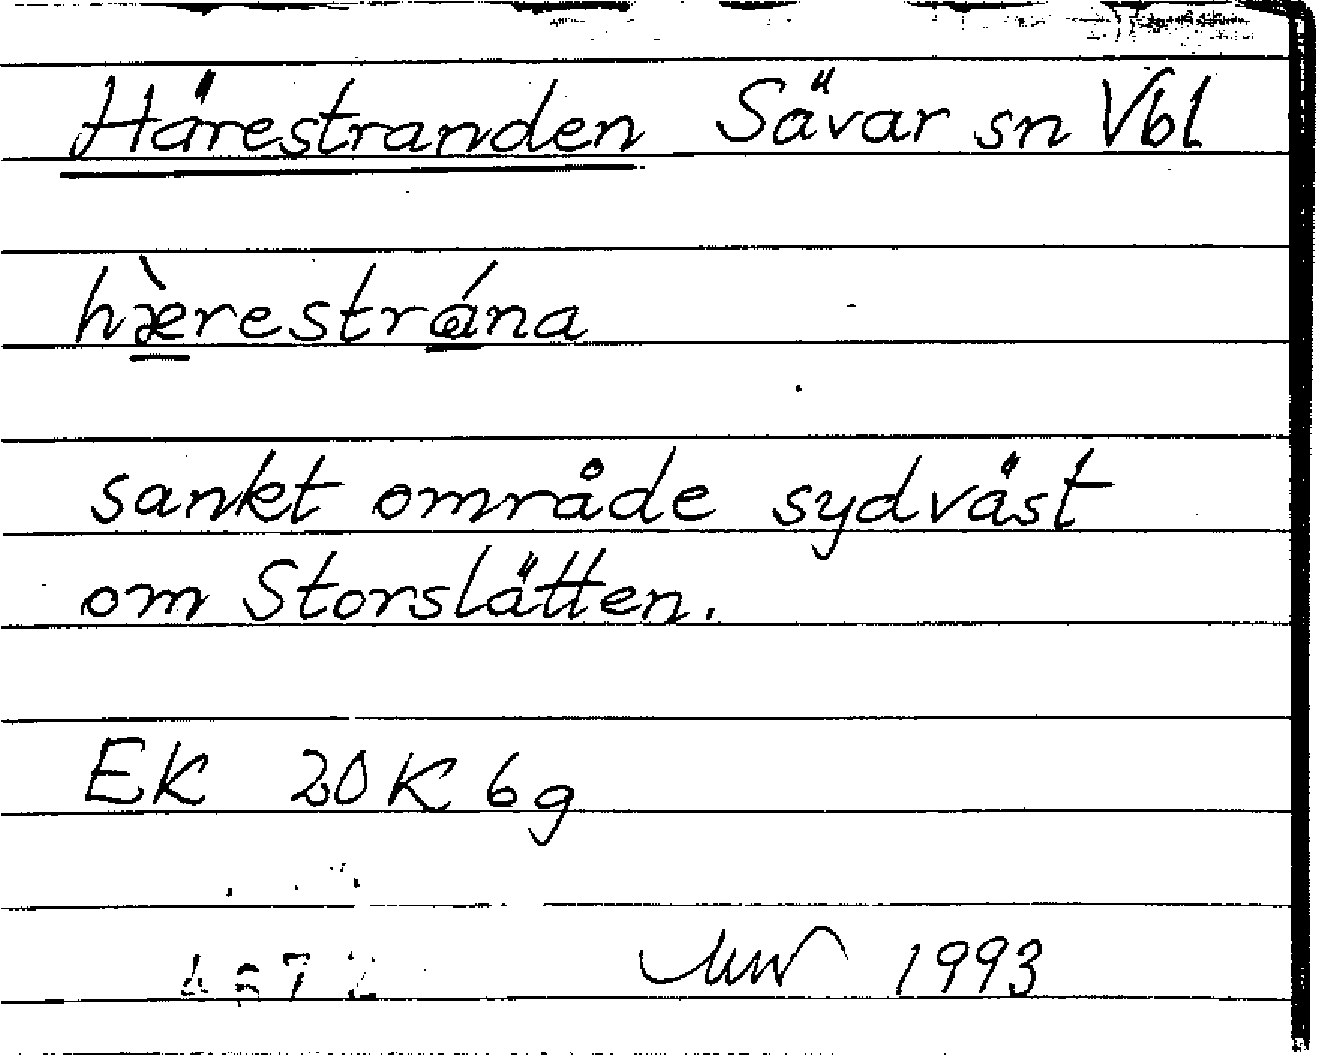 Härestranden Sävar sn Vbl
hæ̀restrána
sankt område sydväst
om Storslätten.
EK 20K 6g
1993